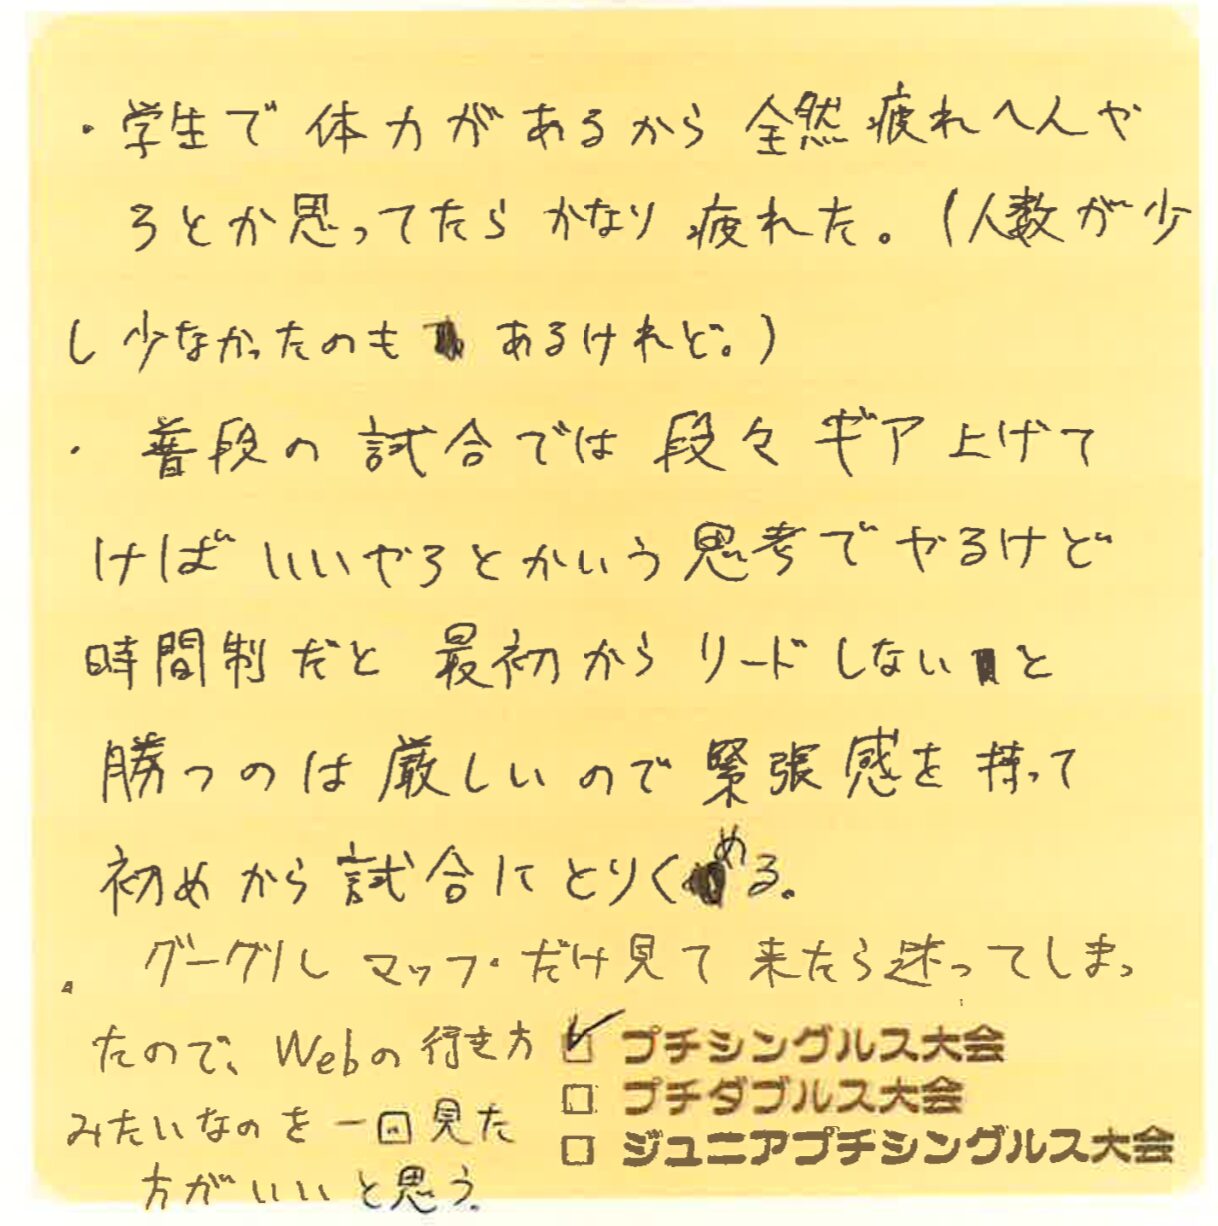 ・学生で体力があるから全然疲れへんや
ろとか思ってたらかなり疲れた。(人数が少
し少なかったのもあるけれど。)
・普段の試合では段々ギア上げて
けばいいやろとかいう思考でやるけど
時間制だと最初からリードしないと
勝つのは厳しいので緊張感を持って
初めから試合にとりくめる。
・グーグルマップだけ見て来たら迷ってしまっ
たので、Webの行き方
みたいなのを一回見た
方がいいと思う。
☑ プチシングルス大会
□ プチダブルス大会
□ ジュニアプチシングルス大会